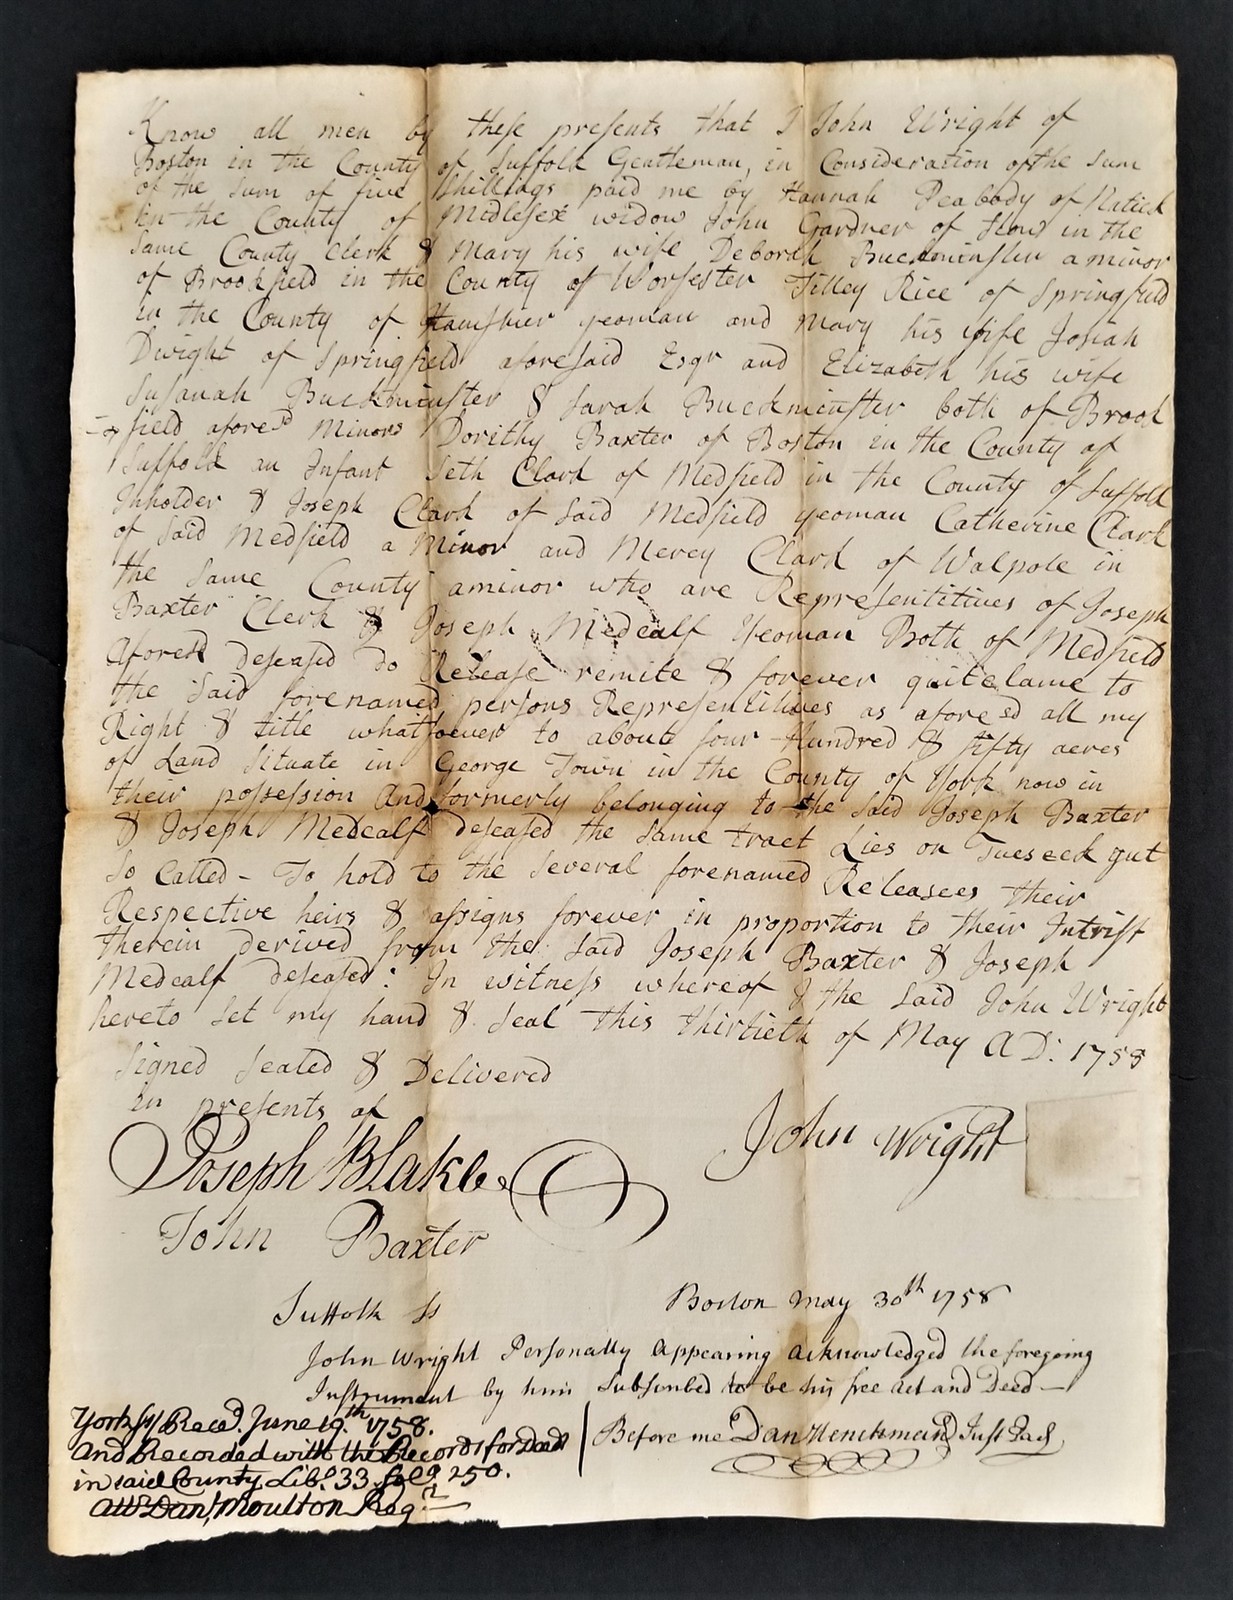 Know all men by these presents that I John Wright of
Boston in the County of Suffolk Gentleman, in Consideration of the Sum
of the Sum of five Shillings paid me by Hannah Peabody of Natick
in the County of Midlesex widow John Gardner of Stow in the
Same County Clerk & Mary his wife Deborah Buckminster a minor
of Brookfield in the County of Worsester Tilley Rice of Springfield
in the County of Hamshier yeoman and Mary his wife Josiah
Dwight of Springfield aforesaid Esqr and Elizabeth his wife
Susanah Buckminster & Sarah Buckminster both of Brook
field afored Minors Dorithy Baxter of Boston in the County of
Suffold an Infant Seth Clark of Medfield in the County of Suffolk
Inholder & Joseph Clark of Said Medfield yeoman Catherine Clark
of Said Medfield a Minor and Mercy Clark of Walpole in
the Same County aminor who are Representitives of Joseph
Baxter Clerk & Joseph Medcalf Yeoman Both of Medfield
Aforesd desesased do Release remite & forever quiteclame to
the Said forenamed persons Representitives as aforesd all my
Right & title whatsoever to about four Hundred & fifty acres
of Land Situate in George Town in the County of York now in
their possession And formerly belonging to the Said Joseph Baxter
& Joseph Medcalf desesased the Same tract Lies on Tueseck gut
So Called - To hold to the Several forenamed Releasees their
Respective heirs & assigns forever in proportion to their Intrist
therein derived from the Said Joseph Baxter & Joseph
Medcalf desesased: In witness whereof I the Said John Wright
hereto Set my hand & Seal this thirtieth of May A D: 1758
Signed Sealed & Delivered
in presents of
John Wright
Joseph Blake
John Baxter
Suffolk Ss Boston May 30th 1758
John Wright Personally Appearing Acknowledged the foregoing
Instrument by him Subscribed to be his free Act and Deed—
Before me Dan Henchman Just Pac
York ss/ Recd. June 19th 1758.
And Recorded with the Records for Deeds
in said County Lib. 33 fol. 250.
Attr Danl Moulton Regr